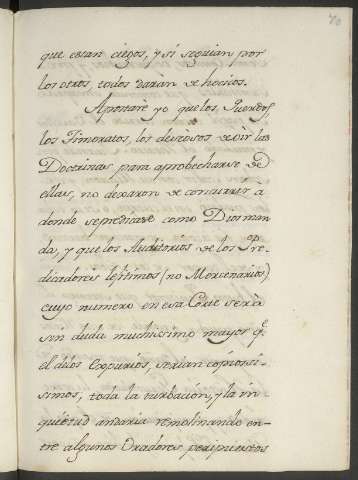 70
que estan ciegos, y si seguian por
los otros, todos daràn de hocicos.
Apostarè yo que los Buenos,
los Timoratos, los deseosos de oir las
Doctrinas para aprobecharse de
ellas, no dexaron de concurrir à
donde sepredicase como Dios man
da, y que los Auditorios de los Pre-
dicadores lexitimos (no Mercenarios)
cuyo numero en esa Corte serà
sin duda muchissimo mayor q.e
el de los Expurios, serian copiossi-
simos, toda la turbacion, y la in
quietud andaria remolinando en-
tre algunos Oradores peripuestos